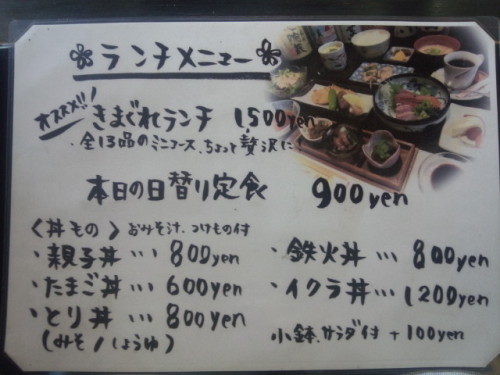 ランチメニュー
オススメ!!! きまぐれランチ 1,500yen
・全13品のミニコース、ちょっと贅沢に!
本日の日替り定食 900yen
〈丼もの〉おみそ汁、つけもの付
・親子丼… 800yen
・たまご丼… 600yen
・とり丼… 800yen
(みそ/しょうゆ)
・鉄火丼… 800yen
・イクラ丼… 1200yen
小鉢、サラダ付 +100yen